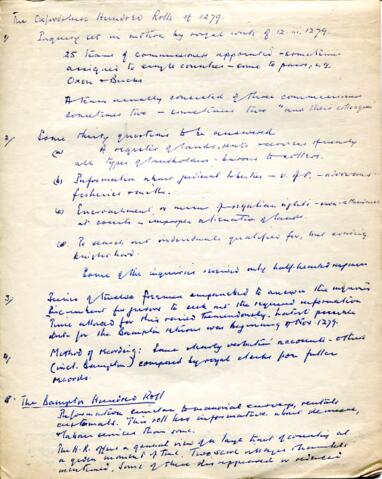 The Oxfordshire Hundred Rolls of 1279.
1) Inquiry set in motion by royal writ of 12 iii 1279.
25 teams of commissioners appointed - sometimes
assigned to single counties - some to pairs, e.g.
Oxon & Bucks
A team usually consisted of three commissioners
sometimes two - sometimes two "and their colleagues
2) Some thirty questions to be answered
(a) A register of lands, units services of nearly
all types of landholders - barons to cottars.
(b) Information about judicial liberties - v. of f. -
fisheries
(c) Encroachment on royal rights - non-attendance
at courts - improper alienation of lands
(d) To search out individuals qualified for, but evading
knighthood.
Some of the inquiries received only half-hearted responses
3) Juries of twelve freemen empanelled to answer the inquiries
Incumbent for jurors to seek out the required information
Time allowed for this varied tremendously. Latest possible
date for the Bampton returns was beginning of Nov. 1279.
4) Method of Recording: Some clearly verbatim accounts - others
(incl. Bampton) compiled by royal clerks from fuller
records
The Bampton Hundred Roll
Information similar to manorial surveys, rentals
customals. This roll less informative about demesne,
& labour services than some.
The H.R. offers a general view of a large tract of country at
a given moment of time. Two score villages &
mentioned. Some of these disappeared or reduced